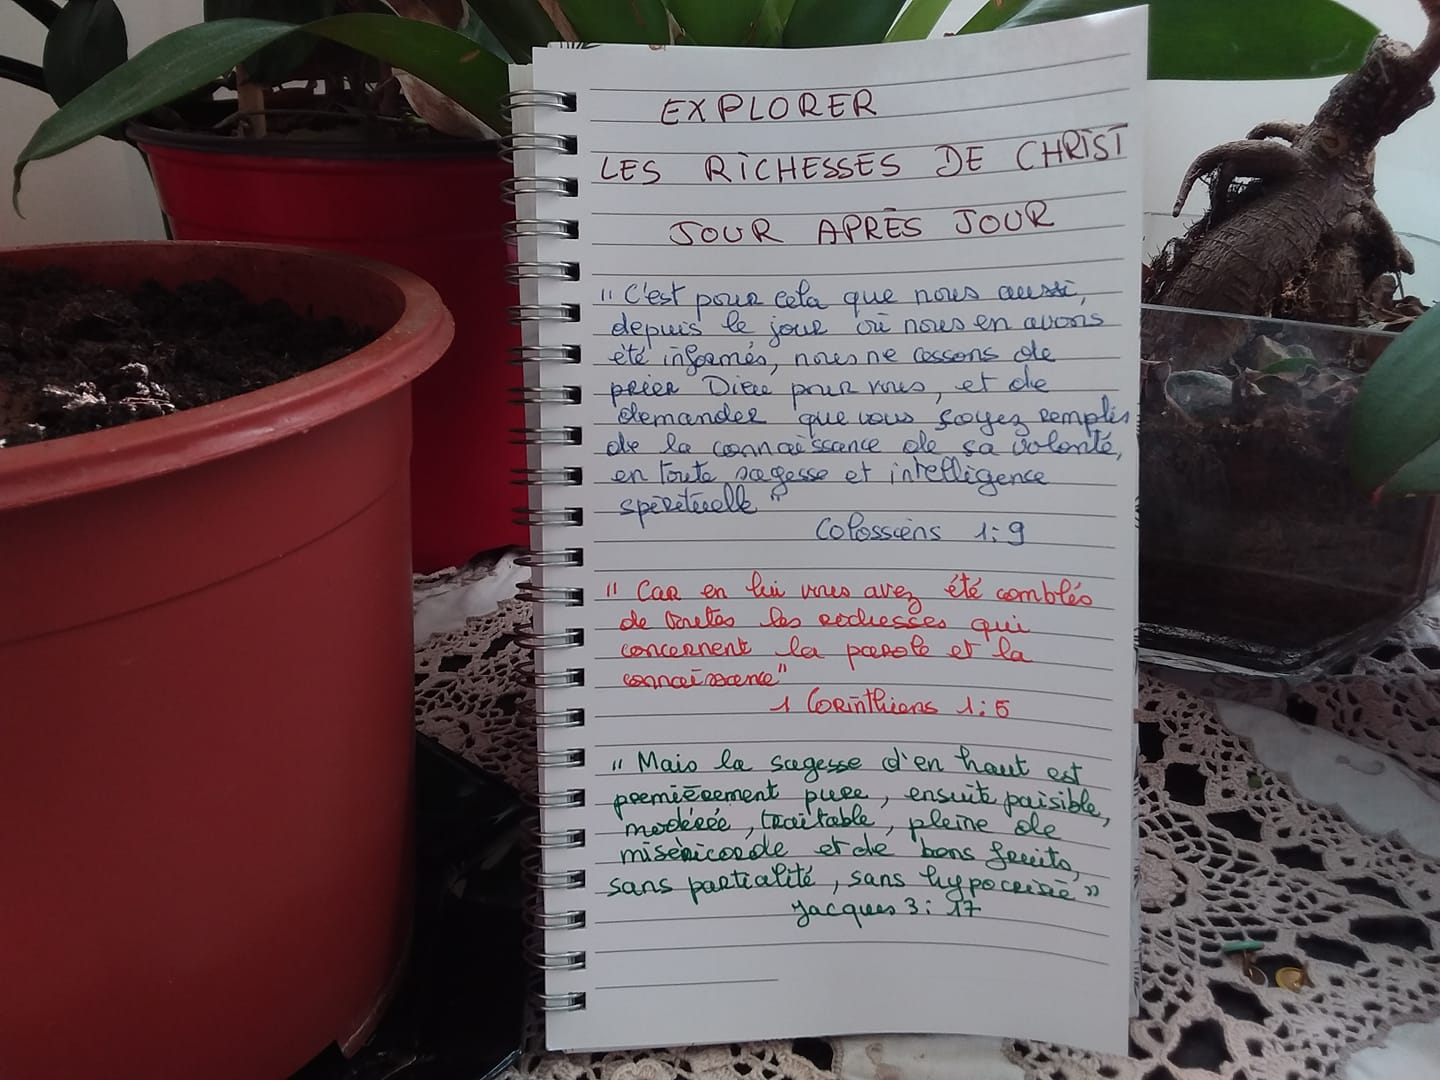 EXPLORER
LES RICHESSES DE CHRIST
JOUR APRÈS JOUR
" C'est pour cela que nous aussi,
depuis le jour où nous en avons
été informés, nous ne cessons de
prier Dieu pour vous, et de
demander que vous soyez remplis
de la connaissance de sa volonté,
en toute sagesse et intelligence
spirituelle "
Colossiens 1:9
" Car en lui vous avez été comblés
de toutes les richesses qui
concernent la parole et la
connaissance"
1 Corinthiens 1:5
" Mais la sagesse d'en haut est
premièrement pure, ensuite paisible,
modérée, traitable, pleine de
miséricorde et de bons fruits,
sans partialité, sans hypocrisie "
Jacques 3:17